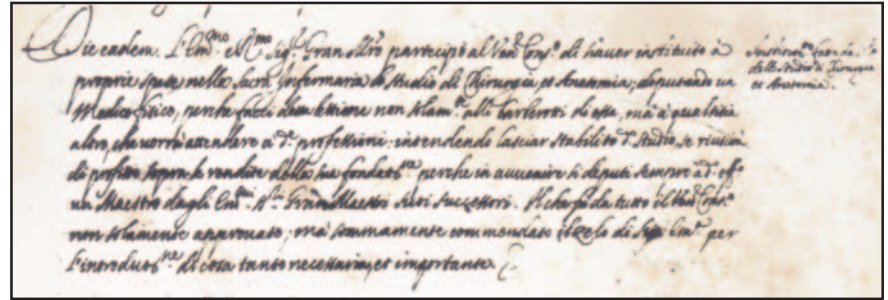 Die eadem. L'Em.mo e R.mo Sig.r Gran M.ro participò al Ven. Cons.o di haver instituito à
proprie spese nella Sacra Infermaria lo studio di Chirurgia, et Anatomia; deputando un
Medico fisico, perche facci lettione non solam.te alli barberotti di essa, mà à qualsisia
altro, che vorrà attendere à d.e professioni: intendendo lasciar stabilito d.o studio, se riuscirà
di profitto sopra le rendite della sua fondat.ne perche in avvenire si deputi sempre ad eff.o
un Maestro dagli Em.mi Gran Maestri suoi successori. Il che fù da tutto il Ven. Cons.o
non solamente approvato, mà sommamente commendato il zelo di Em.za per
l'introdut.ne di cosa tanto necessaria, et importante.
dello Studio di Chirurgia
et Anatomia.